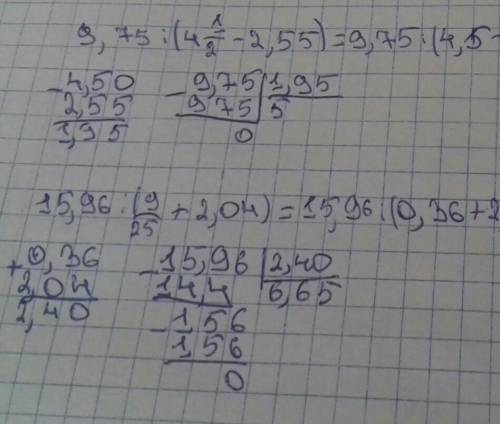 9,75:(4 1/2-2,55)=9,75:(4,5-
-4,50
2,55
1,95
-9,75|1,95
975|5
0
15,96:(9/25+2,04)=15,96:(0,36+2
+0,36
2,04
2,40
-15,96|2,40
144|6,65
-156
156
0